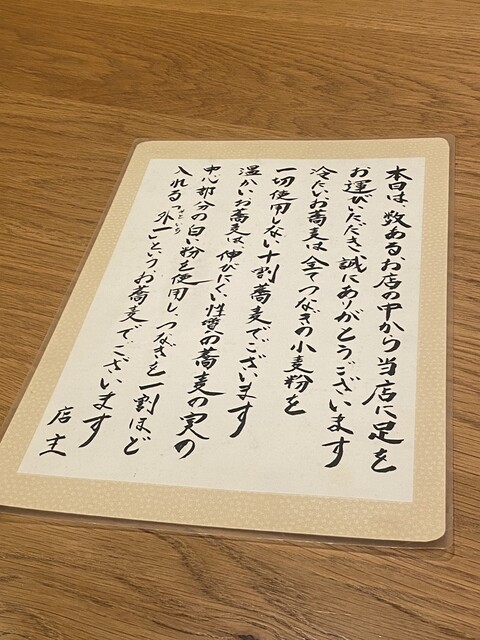 本日は、数あるお店の中から当店に足を
お運びいただき誠にありがとうございます
冷たいお蕎麦は全てつなぎの小麦粉を
一切使用しない十割蕎麦でございます
温かいお蕎麦は、伸びにくい性質の蕎麦の実の
中心部分の白い粉を使用し、つなぎを一割ほど
入れる外一というお蕎麦でございます
店主